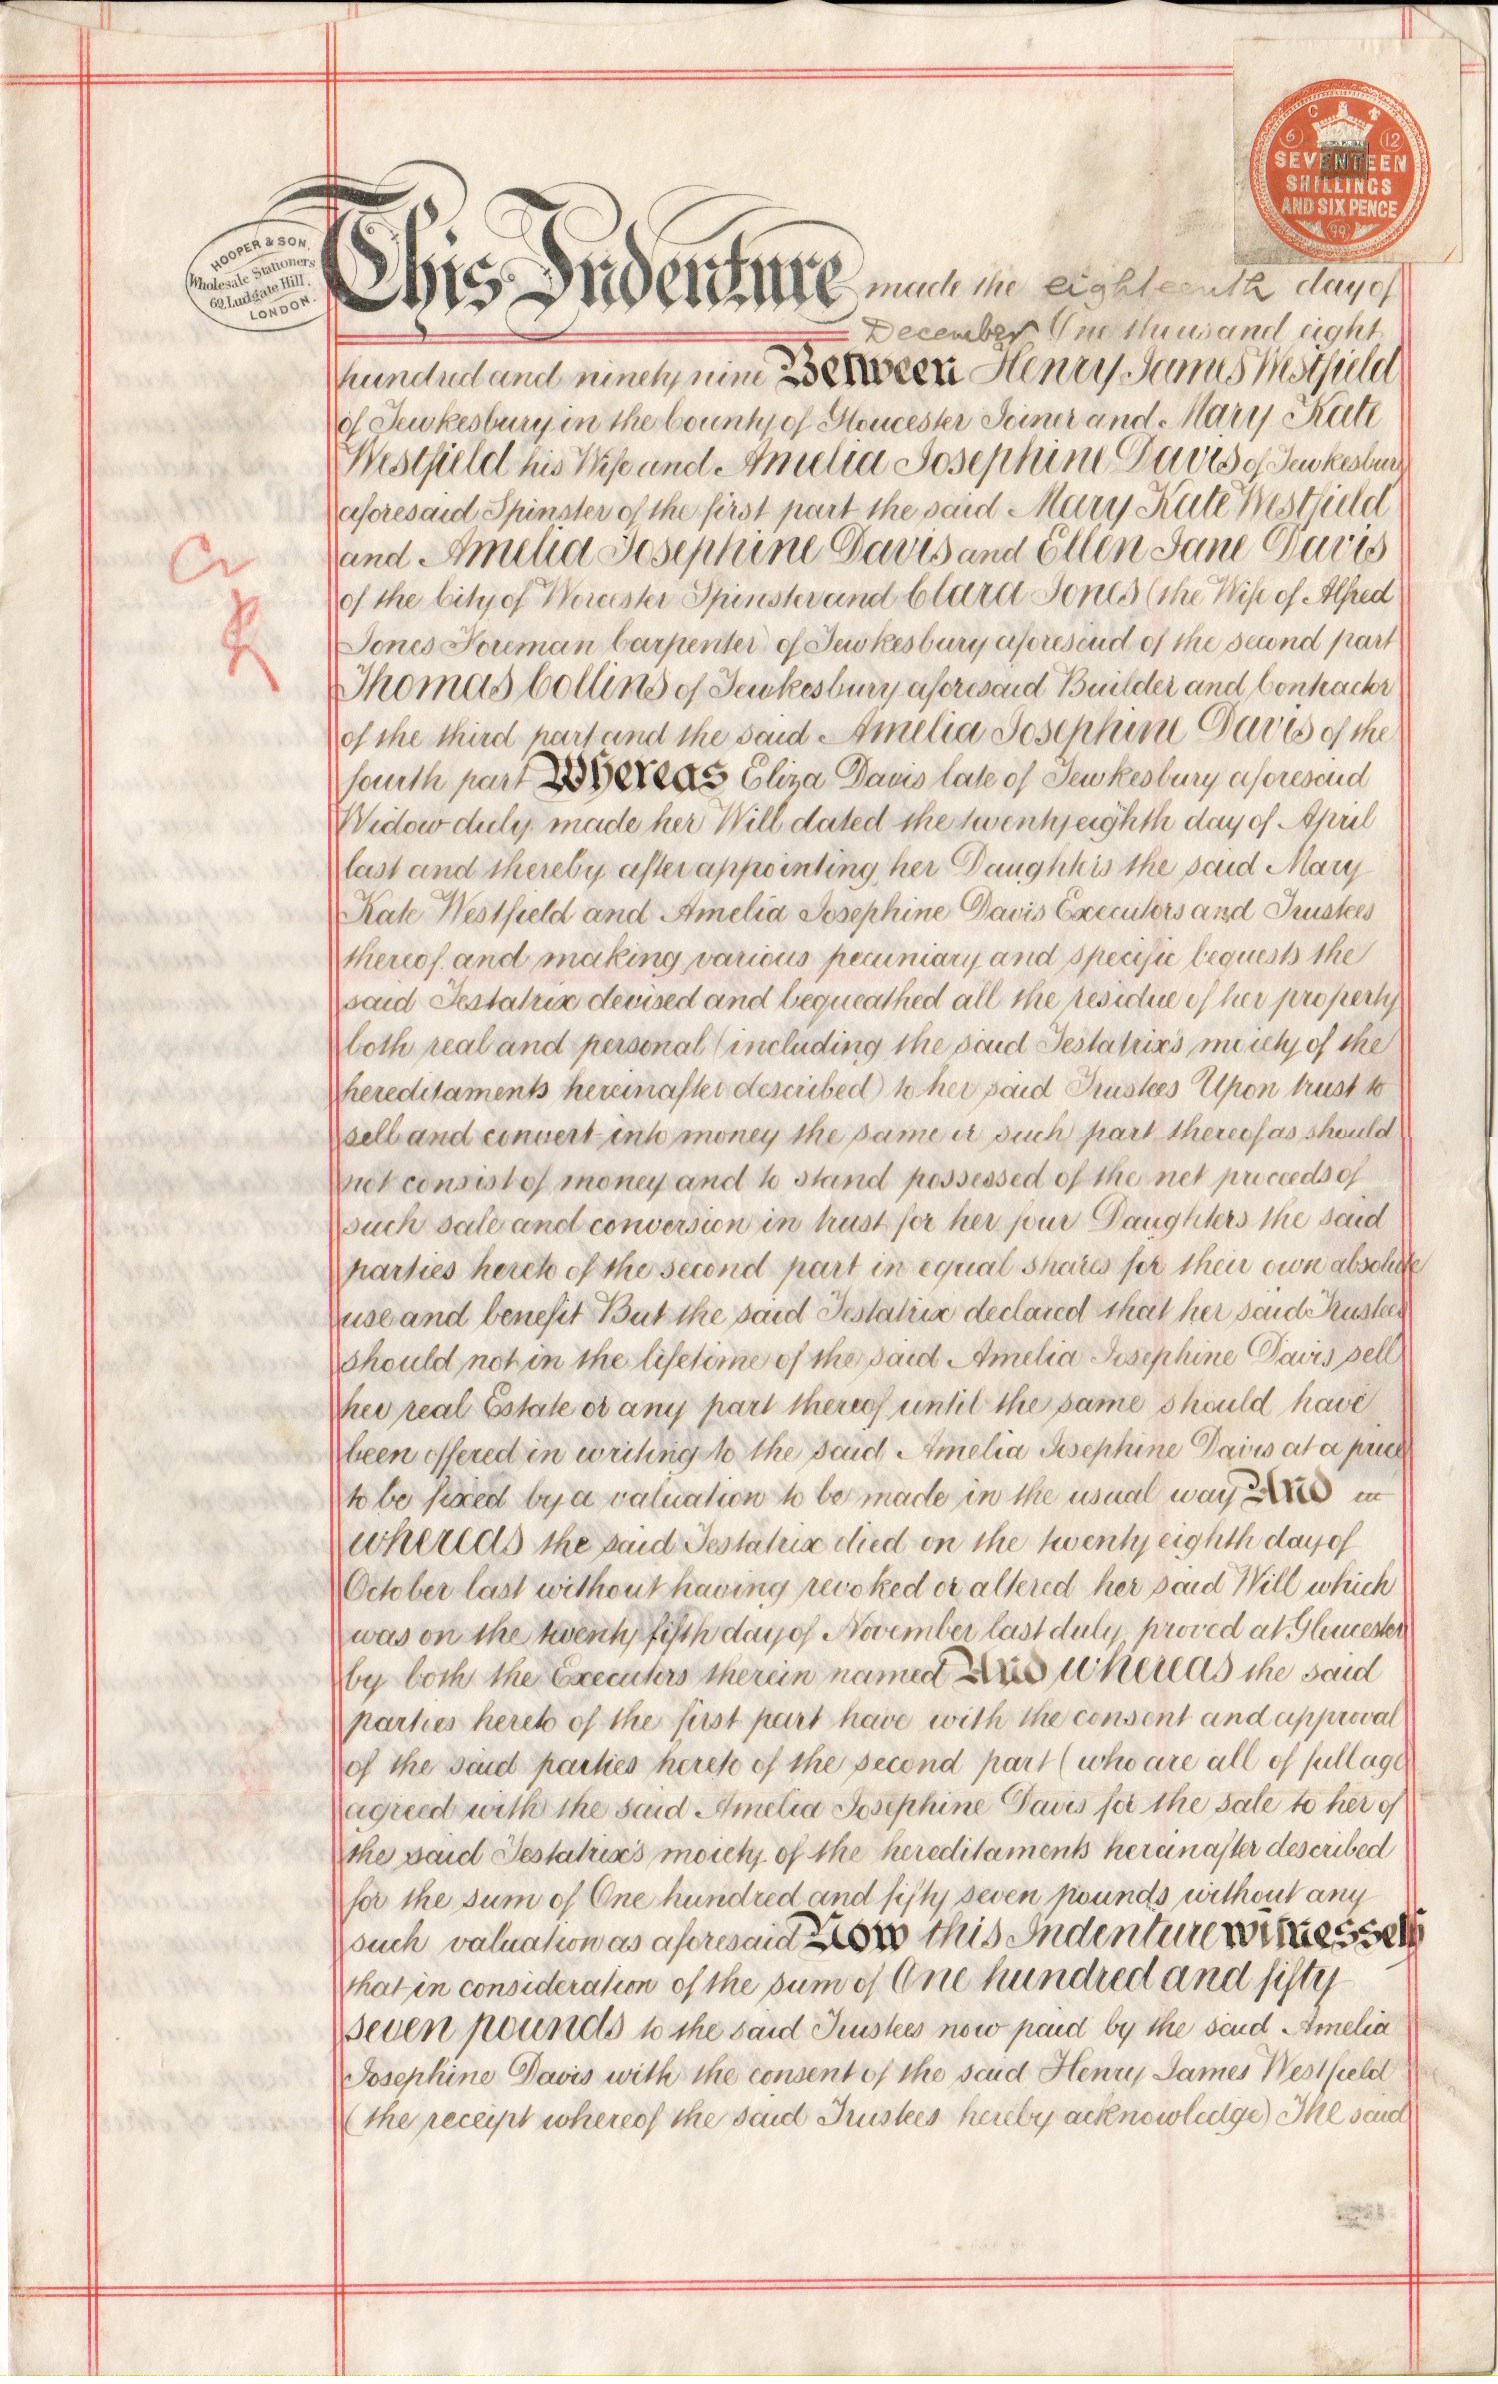 C 6 12
SEVENTEEN
SHILLINGS
AND SIX PENCE
99
HOOPER & SON,
Wholesale Stationers
69, Ludgate Hill,
LONDON.
This Indenture made the eighteenth day of
December One thousand eight
hundred and ninety nine Between Henry James Westfield
of Tewkesbury in the County of Gloucester Joiner and Mary Kate
Westfield his Wife and Amelia Josephine Davis of Tewkesbury
aforesaid Spinster of the first part the said Mary Kate Westfield
and Amelia Josephine Davis and Ellen Jane Davis
of the City of Worcester Spinster and Clara Jones (the Wife of Alfred
Jones Foreman Carpenter) of Tewkesbury aforesaid of the second part
Thomas Collins of Tewkesbury aforesaid Builder and Contractor
of the third part and the said Amelia Josephine Davis of the
fourth part Whereas Eliza Davis late of Tewkesbury aforesaid
Widow duly made her Will dated the twenty eighth day of April
last and thereby after appointing her Daughters the said Mary
Kate Westfield and Amelia Josephine Davis Executors and Trustees
thereof and making various pecuniary and specific bequests the
said Testatrix devised and bequeathed all the residue of her property
both real and personal (including the said Testatrix's moiety of the
hereditaments hereinafter described) to her said Trustees Upon trust to
sell and convert into money the same or such part thereof as should
not consist of money and to stand possessed of the net proceeds of
such sale and conversion in trust for her four Daughters the said
parties hereto of the second part in equal shares for their own absolute
use and benefit But the said Testatrix declared that her said Trustees
should not in the lifetime of the said Amelia Josephine Davis sell
her real Estate or any part thereof until the same should have
been offered in writing to the said Amelia Josephine Davis at a price
to be fixed by a valuation to be made in the usual way And
whereas the said Testatrix died on the twenty eighth day of
October last without having revoked or altered her said Will which
was on the twenty fifth day of November last duly proved at Gloucester
by both the Executors therein named And whereas the said
parties hereto of the first part have with the consent and approval
of the said parties hereto of the second part (who are all of full age
agreed with the said Amelia Josephine Davis for the sale to her of
the said Testatrix's moiety of the hereditaments hereinafter described
for the sum of One hundred and fifty seven pounds without any
such valuation as aforesaid Now this Indenture witnesseth
that in consideration of the sum of One hundred and fifty
seven pounds to the said Trustees now paid by the said Amelia
Josephine Davis with the consent of the said Henry James Westfield
(the receipt whereof the said Trustees hereby acknowledge) The said